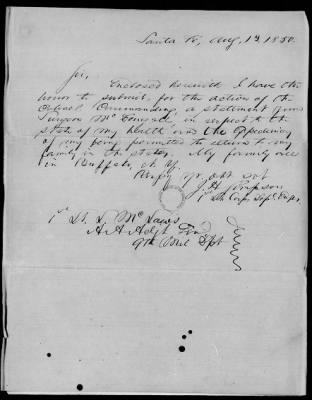 Santa Fe, Aug. 13, 1850.
Sir,
Enclosed herewith I have the
honor to submit, for the action of the
Colonel Commanding a statement from
Surgeon McDougall, in respect to the
state of my health and the expediency
of my being permitted to return to my
family in the states. My family are
in Buffalo, N. Y.
Very respy. Yr. obt. svt.
J. H. Simpson
1st Lt. Corps Topl. Engrs.
1st Lt. L. McLaws
A. A. Adjt. Genl
9th Mil Dept